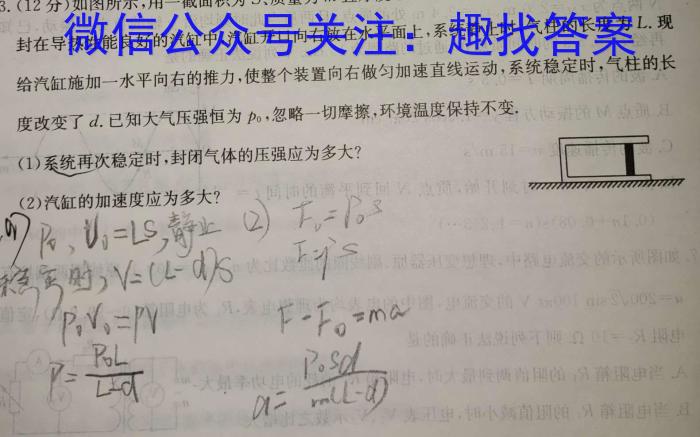 3.(12分)如图所示,用一截面积为S、质量为
微信公众号关注：趣找答案
封在导热性能良好的汽缸中,汽缸开口向右放在水平面上,系统静止时,气柱的长度为L.现
给汽缸施加一水平向右的推力,使整个装置向右做匀加速直线运动,系统稳定时,气柱的长
度改变了d.已知大气压强恒为p₀,忽略一切摩擦,环境温度保持不变.
(1)系统再次稳定时,封闭气体的压强应为多大?
(2)汽缸的加速度应为多大?
P₀, V₀=LS,静止
稳定时,V=(L-d)S
P₀V₀=PV
P=P₀L/(L-d)
(2) F₀=P₀S
F=PS
F-F₀=ma
a=P₀Sd/m(L-d)